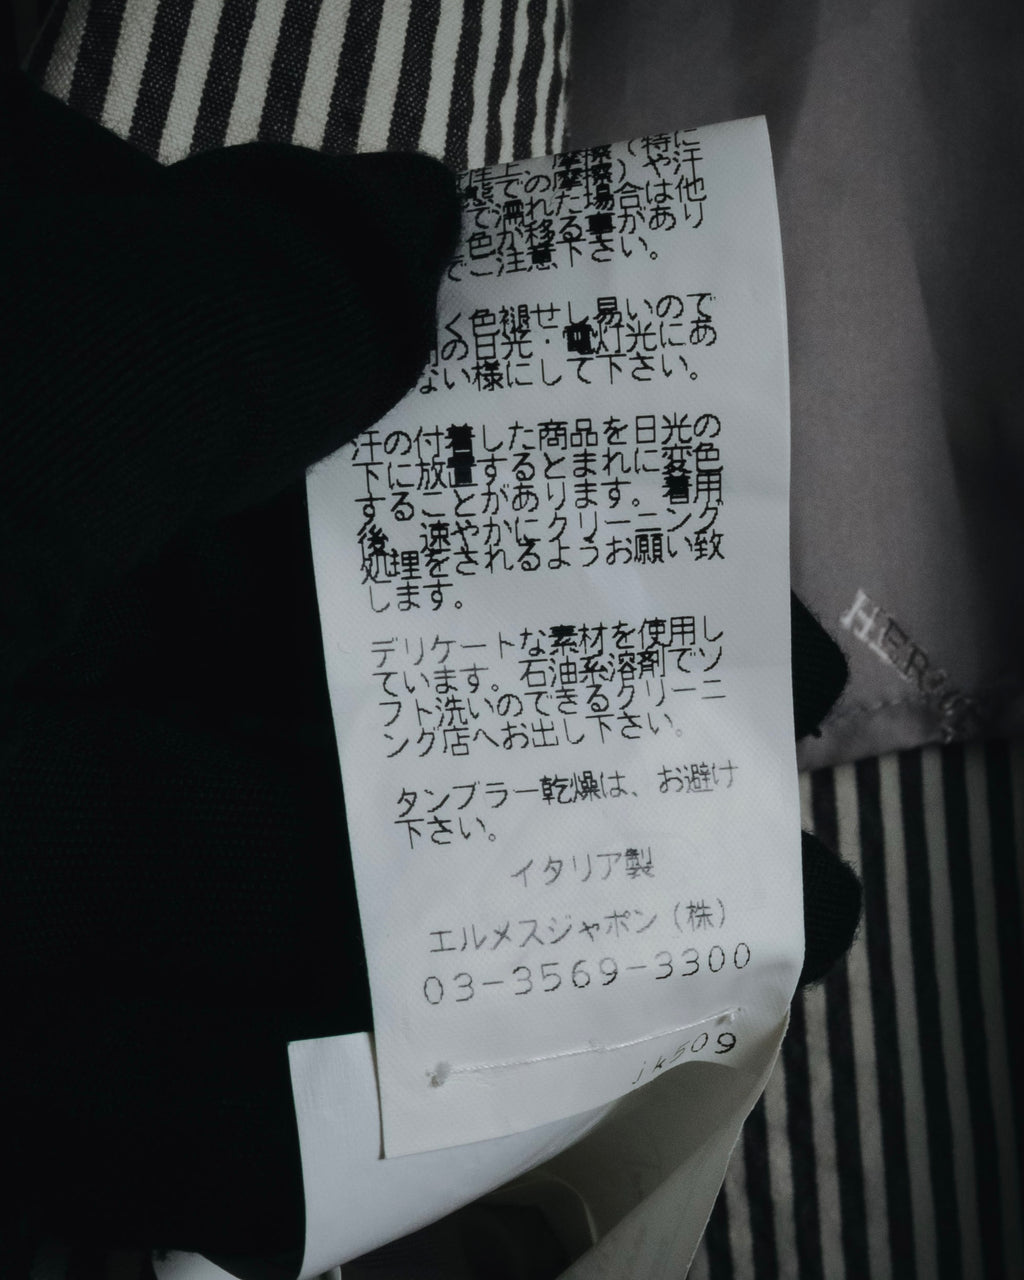 摩擦（特に
態での摩擦）や汗
で濡れた場合は他
色が移る事があり
でご注意下さい。
く色褪せし易いので
の日光・電灯光にあ
ない様にして下さい。
汗の付着した商品を日光の
下に放置するとまれに変色
することがあります。着用
後、速やかにクリーニング
処理をされるようお願い致
します。
デリケートな素材を使用し
ています。石油系溶剤でソ
フト洗いのできるクリーニ
ング店へお出し下さい。
タンブラー乾燥は、お避け
下さい。
イタリア製
エルメスジャポン（株）
03-3569-3300
jk509
HERMES